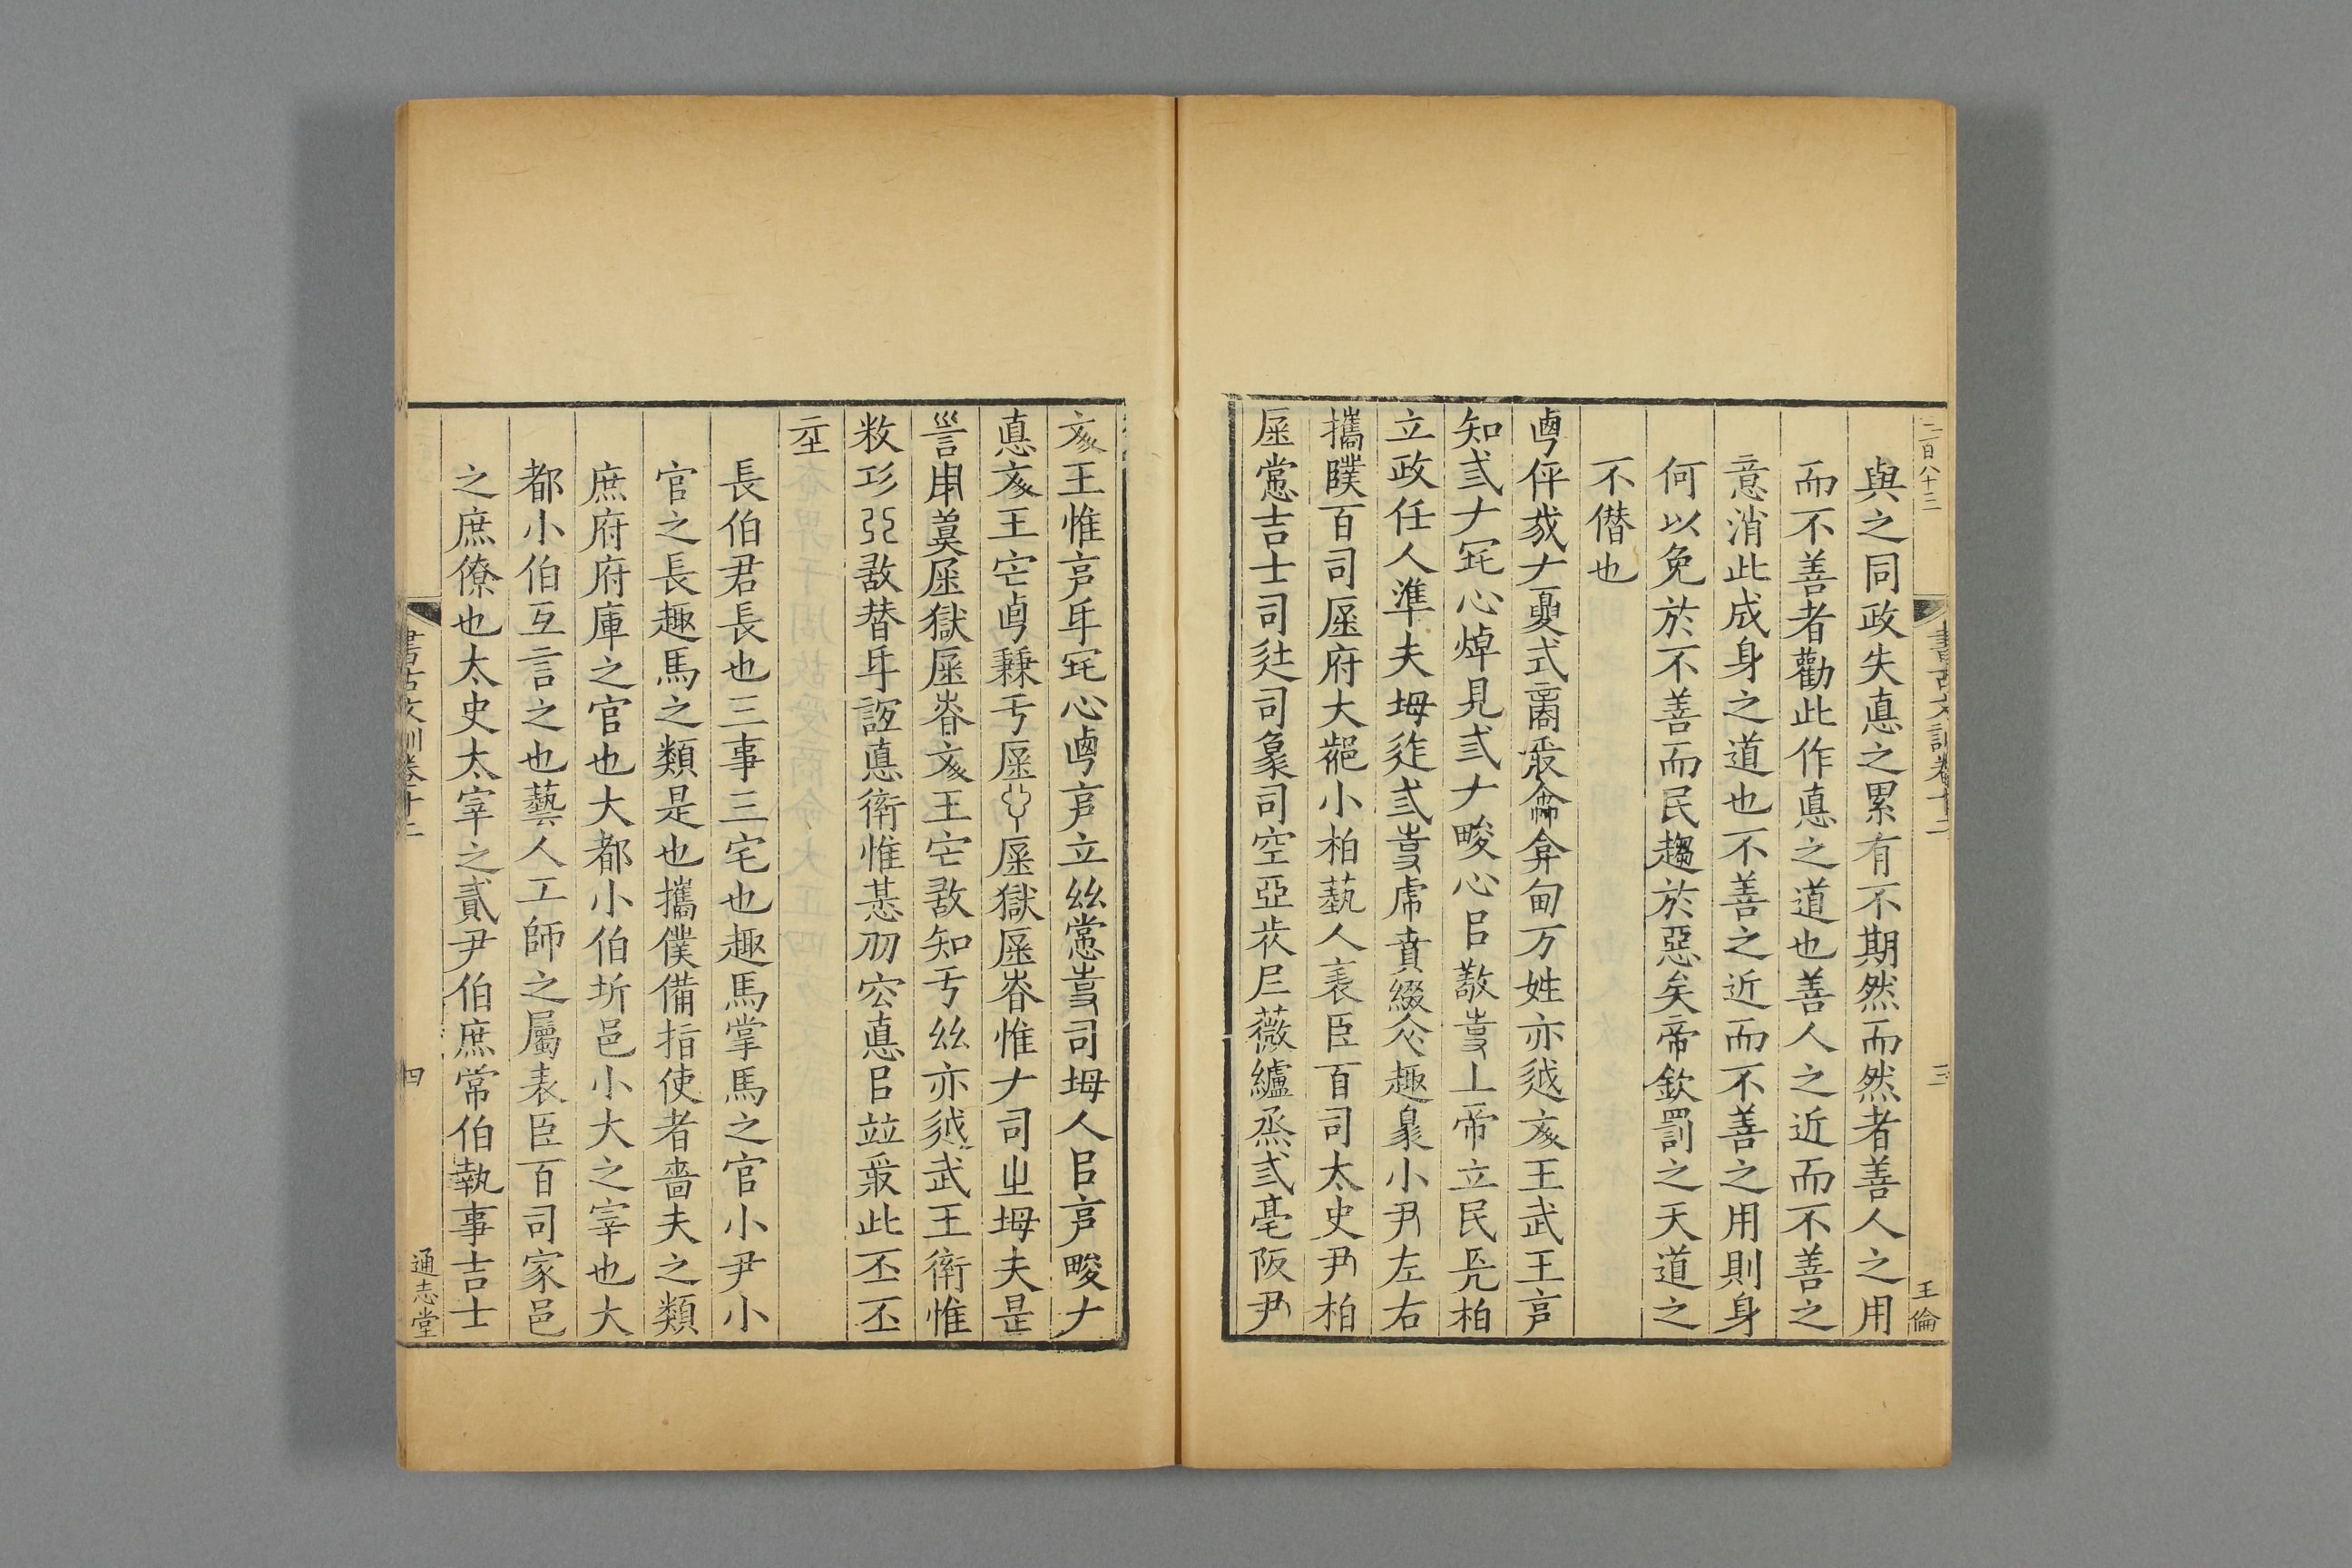 二百八十三
書古文訓卷十二
三
王倫
與之同政失悳之累有不期然而然者善人之用
而不善者勸此作悳之道也善人之近而不善之
意消此成身之道也不善之近而不善之用則身
何以免於不善而民趨於惡矣帝欽罰之天道之
不僭也
伻我𠂇夏式商受命弇甸万姓亦越文王武王
知弎𠂇宅心焯見弎𠂇畯心㠯敬事丄帝立民長柏
立政任人準夫坶作弎事虎賁綴衣趣馬小尹左右
攜㒒百司庶府大都小柏埶人表臣百司太史尹柏
庶常吉士司徒司馬司空亞旅尸薇纑烝弎亳阪尹
文王惟克厥宅心乃克立絲常事司坶人㠯克畯𠂇
悳文王它卣兼亏庶言庶獄庶昚惟𠂇司㞢坶夫是
訓用䔬庶獄庶昚文王它敢知亏絲亦越武王衛惟
敉功弗敢替厥誼悳衛惟謀刕容悳㠯並受此丕丕
亓
長伯君長也三事三宅也趣馬掌馬之官小尹小
官之長趣馬之類是也攜僕備指使者嗇夫之類
庶府府庫之官也大都小伯圻邑小大之宰也大
都小伯互言之也藝人工師之屬表臣百司家邑
之庶僚也太史太宰之貳尹伯庶常伯執事吉士
書古文訓卷十二
四
通志堂